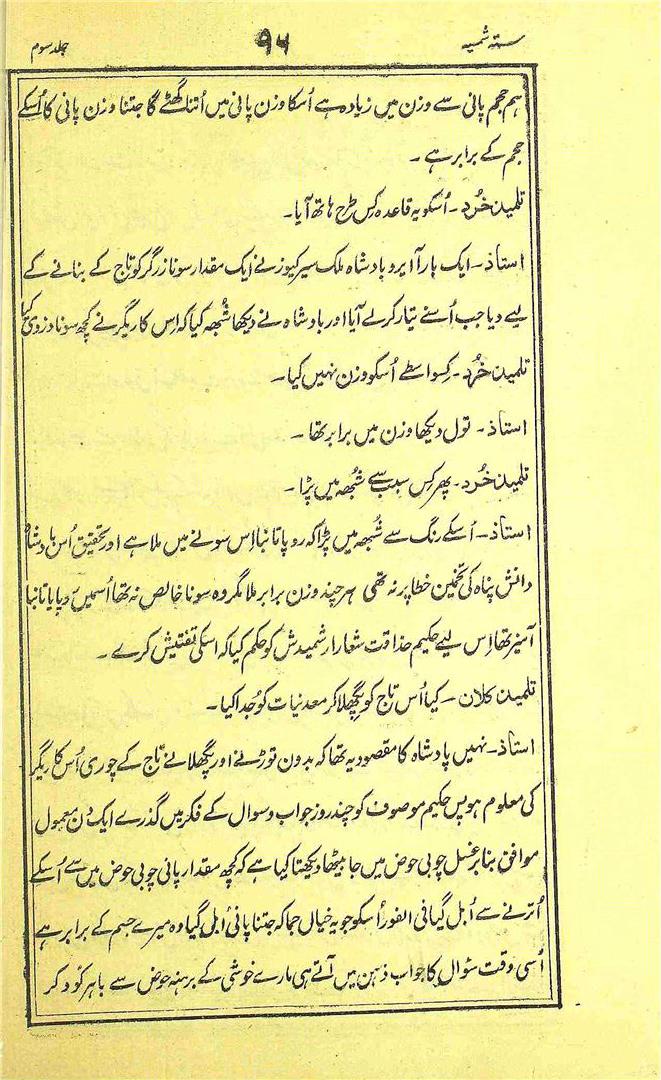 ستہ شمسیہ ۹۵ جلد سوم
ہم حجم پانی سے وزن میں زیادہ ہے اُسکا وزن پانی میں اُتنا گھٹے گا جتنا وزن پانی کا اُسکے
حجم کے برابر ہے ۔
تلمیذ خُرد ۔ اُسکو یہ قاعدہ کِس طرح ہاتھ آیا۔
استاذ ۔ ایک بار آایرو بادشاہ ملک سیرکیوز نے ایک مقدار سونا زرگر کو تاج کے بنانے کے
لیے دیا جب اُسنے تیار کر لے آیا اور بادشاہ نے دیکھا شُبھہ کیا کہ اِس کاریگر نے کچھ سونا دزدی کیا
تلمیذ خُرد ۔ کِسواسطے اُسکو وزن نہیں کیا۔
استاذ ۔ تول دیکھا وزن میں برابر تھا ۔
تلمیذ خُرد ۔ پھر کِس سبب سے شُبھہ میں پڑا ۔
استاذ ۔ اُسکے رنگ سے شُبھہ میں پڑا کہ روپا تانبا اِس سونے میں ملا ہے اور تحقیق اُس بادشاہ
دانش پناہ کی تخمین خطا پر نہ تھی ہر چند وزن برابر ملا مگر وہ سونا خالص نہ تھا اُسمیں روپا یا تانبا
آمیز تھا اِس لیے حکیم حذاقت شعار ارشمیدش کو حکم کیا کہ اسکی تفتیش کرے ۔
تلمیذ کلان ۔ کیا اُس تاج کو پگھلا کر معدنیات کو جُدا کیا۔
استاذ ۔ نہیں پادشاہ کا مقصود یہ تھا کہ بدون توڑنے اور پگھلانے تاج کے چوری اُس کاریگر
کی معلوم ہو پس حکیم موصوف کو چند روز جواب و سوال کے فکر میں گذرے ایک دن معمول
موافق بنا بر غسل چوبی حوض میں جا بیٹھا دیکھتا کیا ہے کہ کچھ مقدار پانی چوبی حوض میں سے اُسکے
اُترنے سے اُبل گیا فی الفور اُسکو جو یہ خیال جما کہ جتنا پانی اُبلی گیا وہ میرے جسم کے برابر ہے
اُسی وقت سؤال کا جواب ذہن میں آتے ہی مارے خوشی کے برہنہ حوض سے باہر کود کر